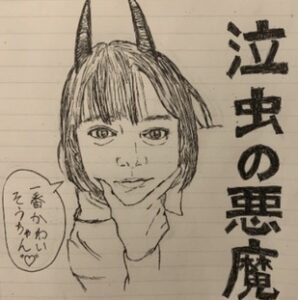 泣虫の悪魔
一番かわい
そうちゃん♡